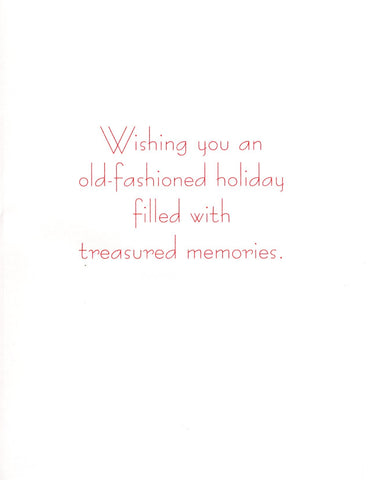 Wishing you an
old-fashioned holiday
filled with
treasured memories.